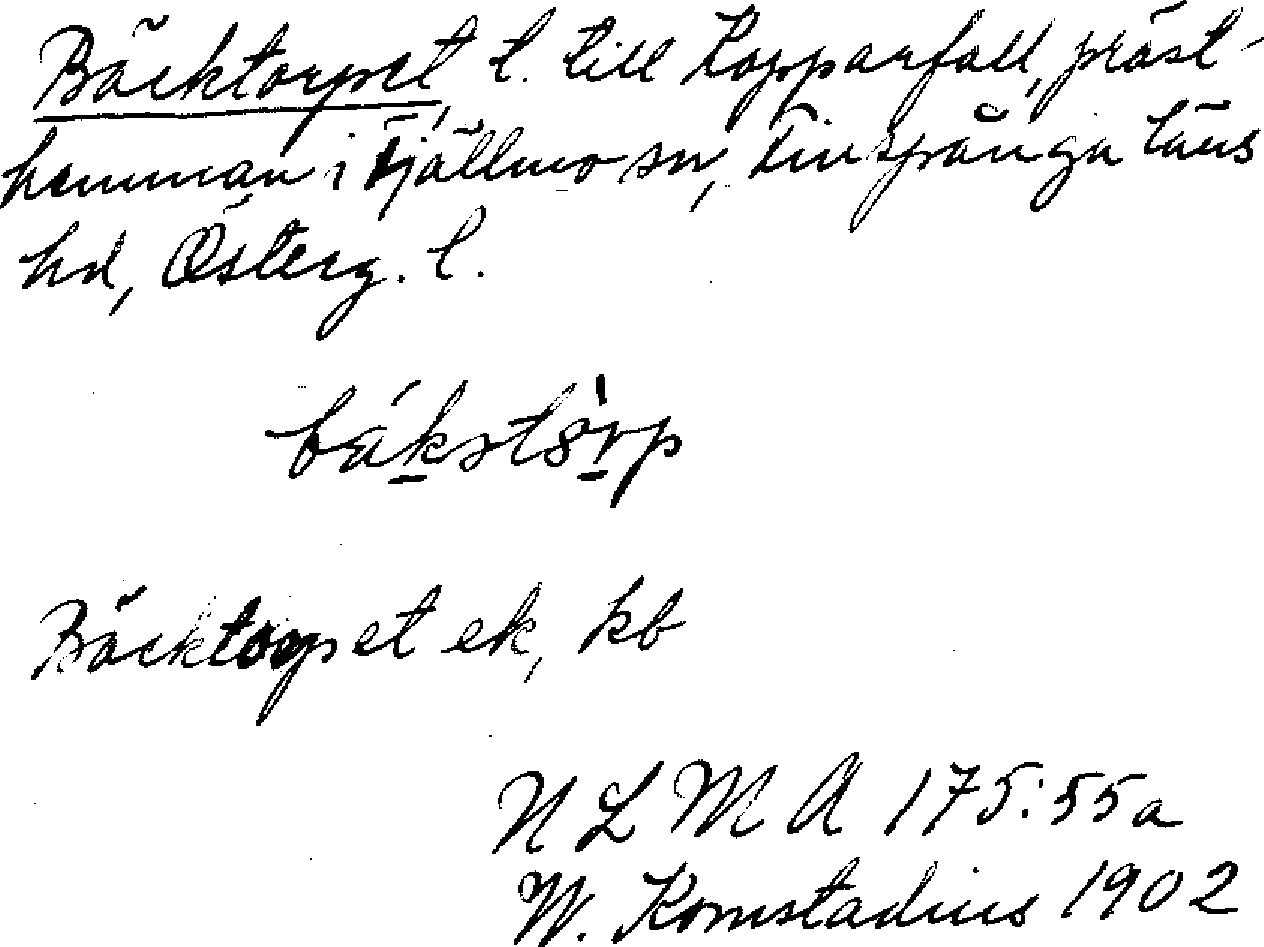 Bäcktorpet, t. till Kopparfall, präst-
hemman i Tjällmo sn, Finspånga läns
hd, Österg. l.
bákstòrp
Bäcktorpet ek, kb
N L M A 175:55a
W. Komstadius 1902